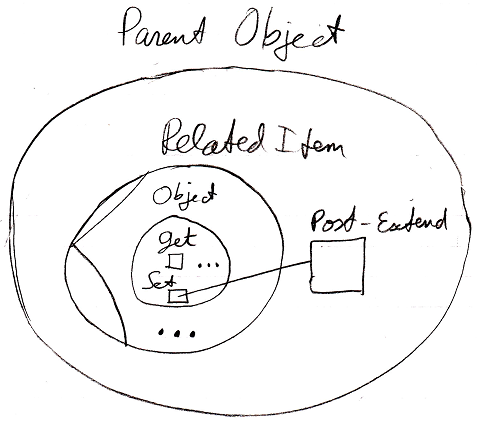 Parent Object
Related Item
Object
get
...
Set
...
Post-Extend